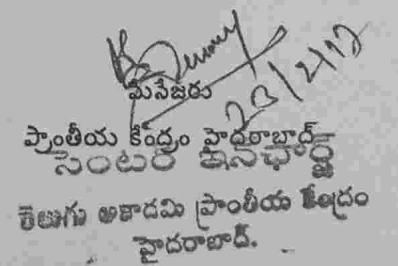 మేనేజరు
23/2/12
ప్రాంతీయ కేంద్రం హైదరాబాద్
సెంటర్ ఇన్‌ఛార్జ్
తెలుగు అకాడమి ప్రాంతీయ కేంద్రం
హైదరాబాద్.